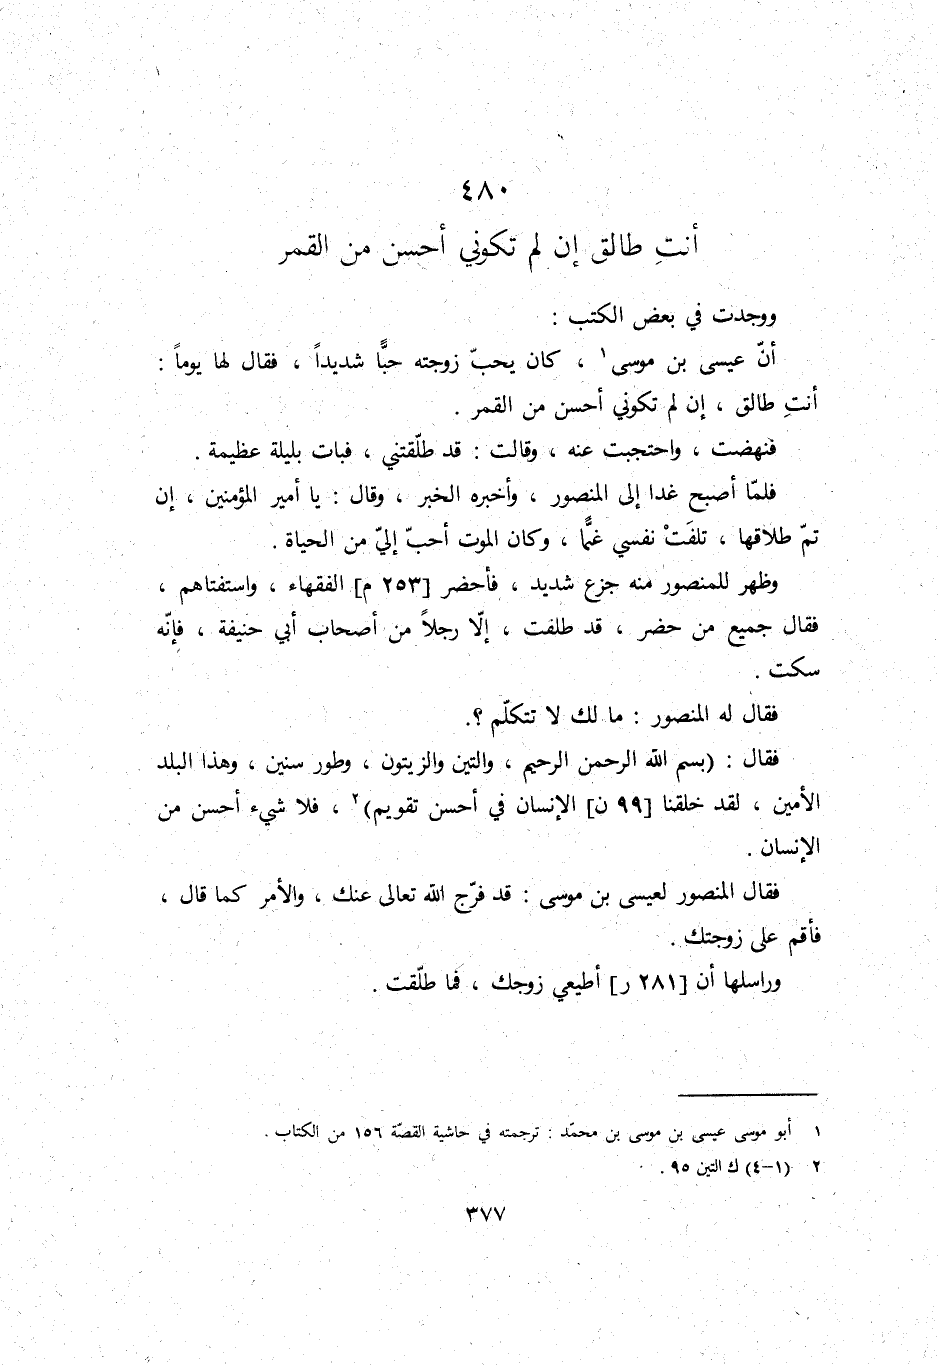 ٤٨٠
أنتِ طالق إن لم تكوني أحسن من القمر
ووجدت في بعض الكتب :
أنّ عيسى بن موسى١ ، كان يحبّ زوجته حبًّا شديداً ، فقال لها يوماً :
أنتِ طالق ، إن لم تكوني أحسن من القمر .
فنهضت ، واحتجبت عنه ، وقالت : قد طلّقتني ، فبات بليلة عظيمة .
فلمّا أصبح غدا إلى المنصور ، وأخبره الخبر ، وقال : يا أمير المؤمنين ، إن
تمّ طلاقها ، تلفَتْ نفسي غمًّا ، وكان الموت أحبّ إليّ من الحياة .
وظهر للمنصور منه جزع شديد ، فأحضر [٢٥٣ م] الفقهاء ، واستفتاهم ،
فقال جميع من حضر ، قد طلفت ، إلّا رجلاً من أصحاب أبي حنيفة ، فإنّه
سكت .
فقال له المنصور : ما لك لا تتكلّم ؟.
فقال : (بسم الله الرحمن الرحيم ، والتين والزيتون ، وطور سنين ، وهذا البلد
الأمين ، لقد خلقنا [٩٩ ن] الإنسان في أحسن تقويم)٢ ، فلا شيء أحسن من
الإنسان .
فقال المنصور لعيسى بن موسى : قد فرّج الله تعالى عنك ، والأمر كما قال ،
فأقم على زوجتك .
وراسلها أن [٢٨١ ر] أطيعي زوجك ، فما طلّقت .
١ أبو موسى عيسى بن موسى بن محمّد : ترجمته في حاشية القصّة ١٥٦ من الكتاب .
٢ (١–٤) ك التين ٩٥ .
٣٧٧